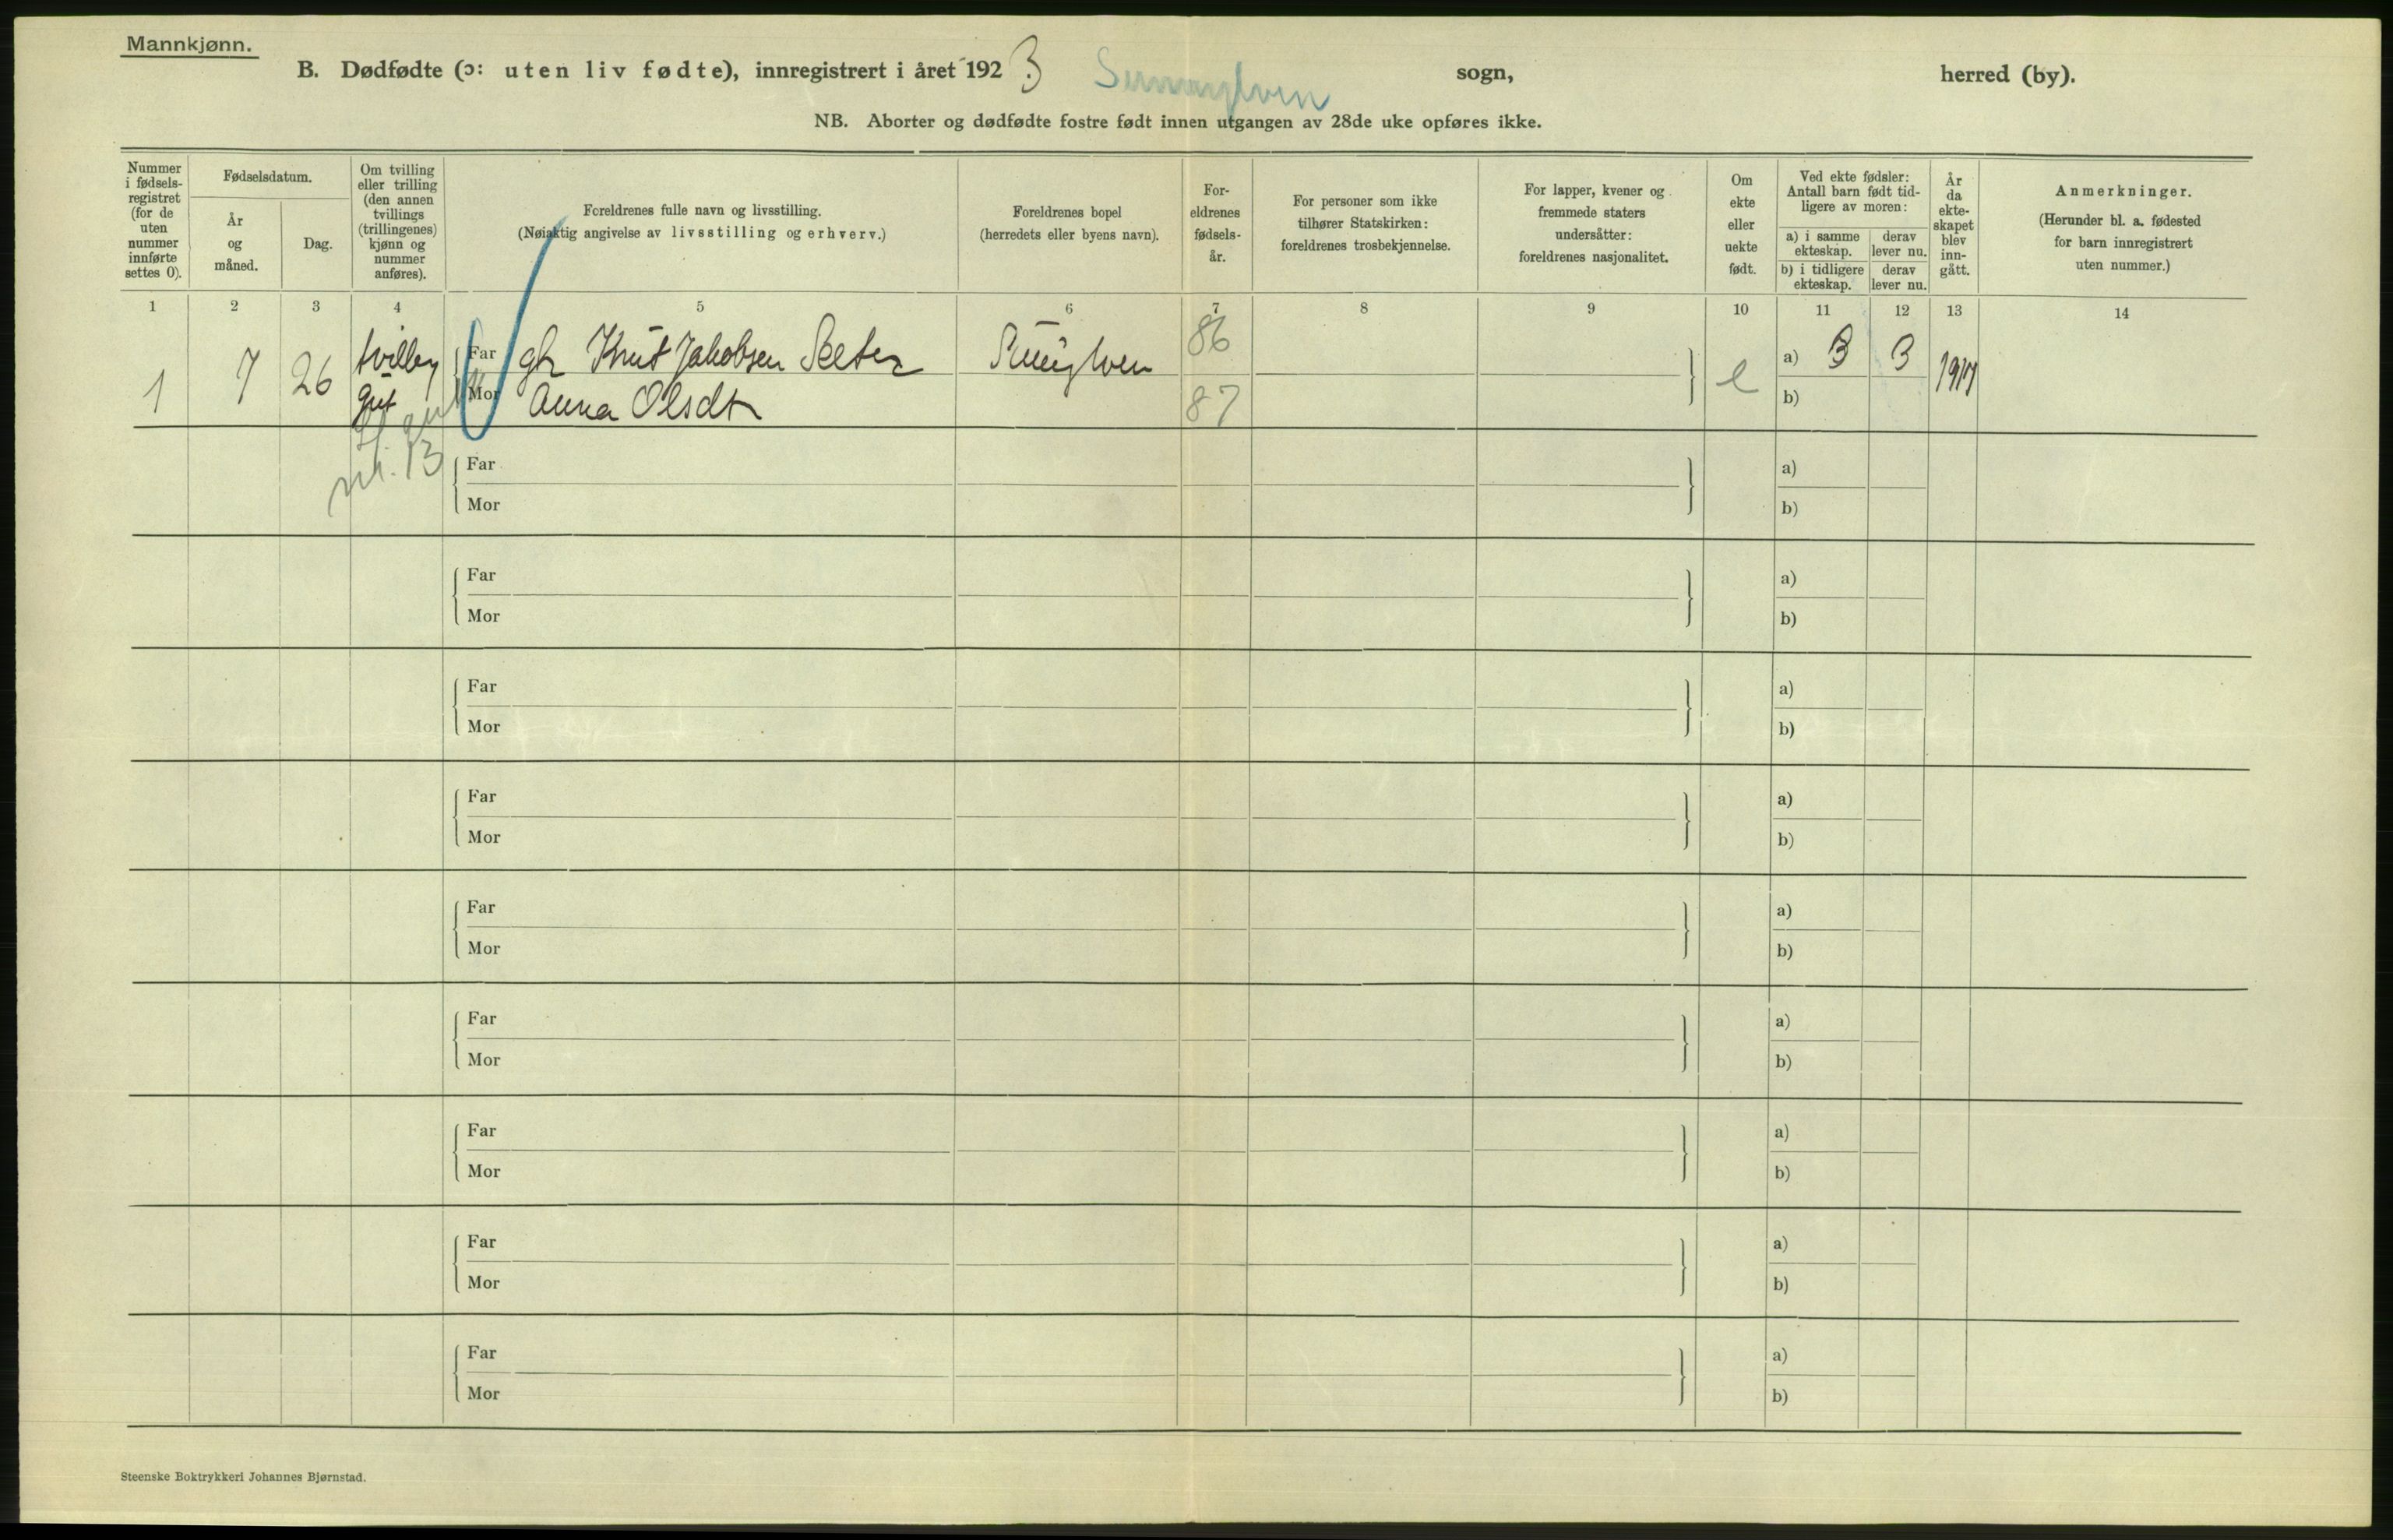 Mannkjønn.
B. Dødfødte (ɔ: uten liv fødte), innregistrert i året 1923 Sunnylven sogn, herred (by).
NB. Aborter og dødfødte fostre født innen utgangen av 28de uke opføres ikke.
Nummer i fødselsregistret (for de uten nummer innførte settes 0).
Fødselsdatum.
År og måned.
Dag.
Om tvilling eller trilling (den annen tvillings (trillingenes) kjønn og nummer anføres).
Foreldrenes fulle navn og livsstilling.
(Nøiaktig angivelse av livsstilling og erhverv.)
Foreldrenes bopel
(herredets eller byens navn).
Foreldrenes fødselsår.
For personer som ikke tilhører Statskirken: foreldrenes trosbekjennelse.
For lapper, kvener og fremmede staters undersåtter: foreldrenes nasjonalitet.
Om ekte eller uekte født.
Ved ekte fødsler: Antall barn født tidligere av moren:
a) i samme ekteskap.
derav lever nu.
b) i tidligere ekteskap.
derav lever nu.
År da ekteskapet blev inngått.
Anmerkninger.
(Herunder bl. a. fødested for barn innregistrert uten nummer.)
1 2 3 4 5 6 7 8 9 10 11 12 13 14
1 7 26 tvilling Far Knut Jakobsen Sæter Sunnylven 86 e a) 3 3 1917
gut Mor Anna Olsdt 87 b)
nr. 13
Far a)
Mor b)
Far a)
Mor b)
Far a)
Mor b)
Far a)
Mor b)
Far a)
Mor b)
Far a)
Mor b)
Far a)
Mor b)
Far a)
Mor b)
Far a)
Mor b)
Steenske Boktrykkeri Johannes Bjørnstad.